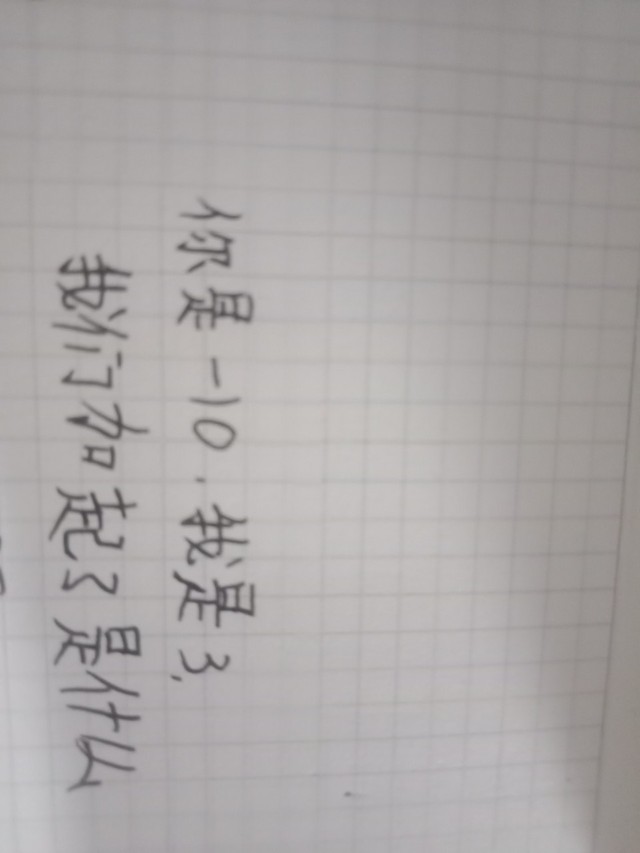 你是-10.我是3.
我们加起了是什么